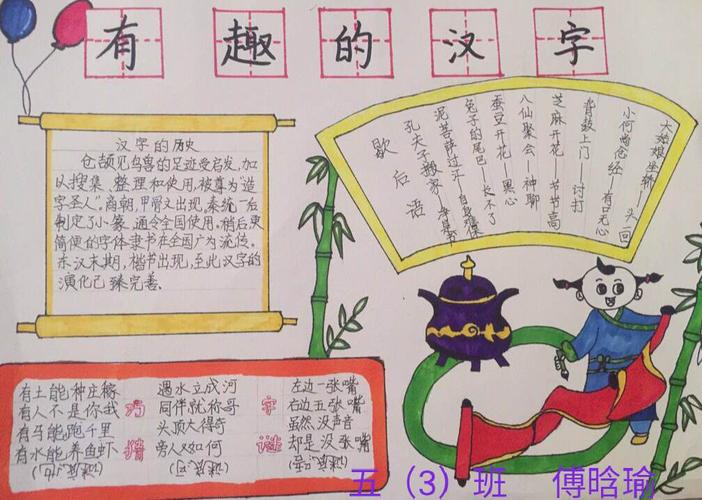 有趣的汉字
汉字的历史
仓颉见鸟兽的足迹受启发,加
以搜集、整理和使用,被尊为“造
字圣人”。商朝,甲骨文出现,秦统一后
制定了小篆,通令全国使用。稍后,更
简便的字体隶书在全国广为流传。
东汉末期,楷书出现,至此汉字的
演化已臻完善。
歇后语
孔夫子搬家—净是书
泥菩萨过江—自身难保
兔子的尾巴—长不了
蚕豆开花—黑心
八仙聚会—神聊
芝麻开花—节节高
背鼓上门—讨打
小何尚念经—有口无心
大姑娘坐轿—头一回
巧猜字谜
有土能种庄稼
有人不是你我
有马能跑千里
有水能养鱼虾
遇水立成河
同伴就称哥
头顶大得奇
旁人又如何
左边一张嘴
右边五张嘴
虽然没声音
却是没张嘴
五(3)班 傅晗瑜